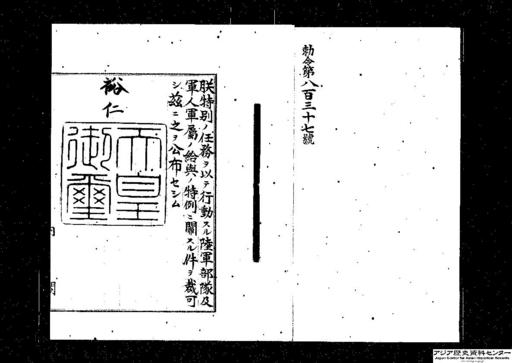 勅令第八百三十七號
朕特別ノ任務ヲ以テ行動スル陸軍部隊及
軍人軍屬ノ給與ノ特例ニ關スル件ヲ裁可
シ玆ニ之ヲ公布セシム
裕仁
天皇
御璽
内
閣
アジア歴史資料センター
Japan Center for Asian Historical Records